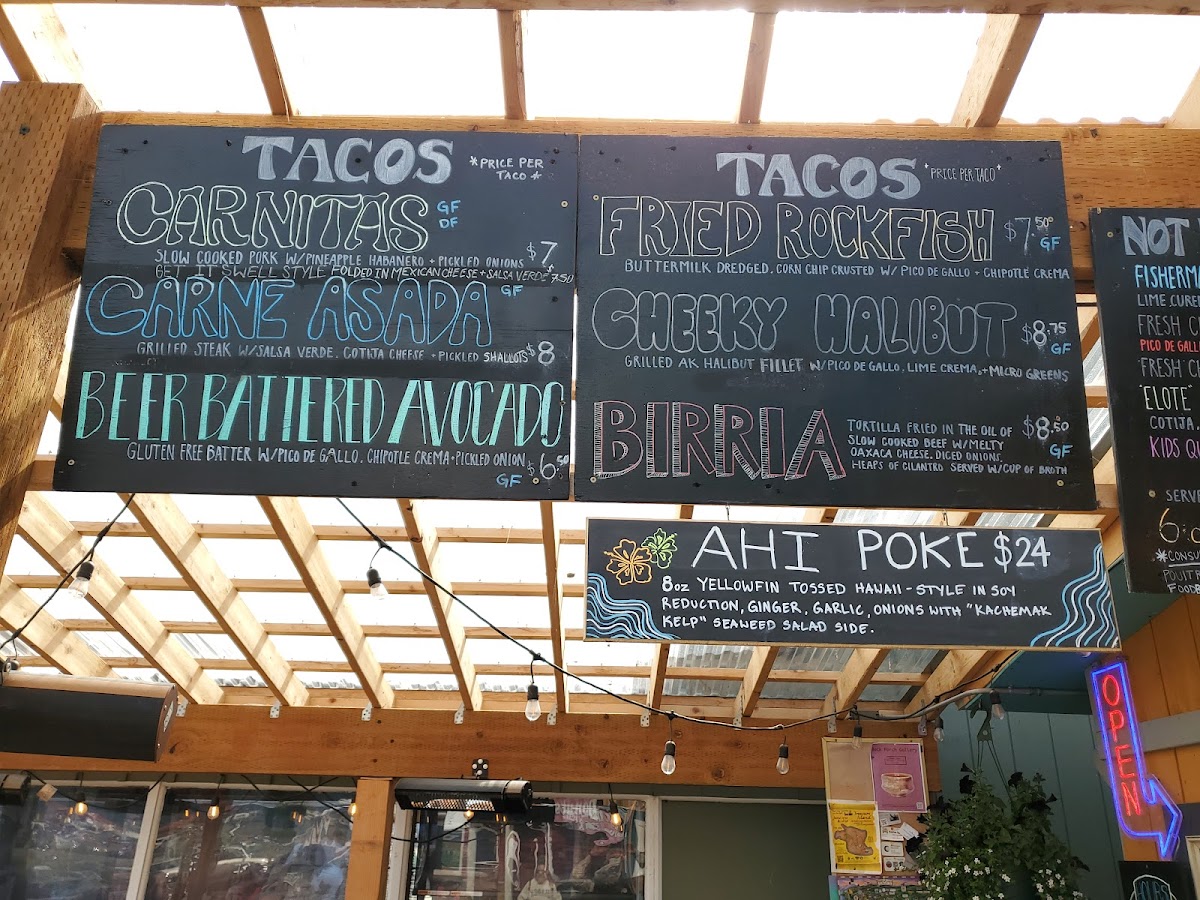 TACOS
*PRICE PER
TACO*
CARNITAS GF
DF
SLOW COOKED PORK W/PINEAPPLE HABANERO + PICKLED ONIONS $7
GET IT SWELL STYLE FOLDED IN MEXICAN CHEESE + SALSA VERDE + 7.50
CARNE ASADA GF
GRILLED STEAK W/SALSA VERDE. COTIJA CHEESE + PICKLED SHALLOTS $8
BEER BATTERED AVOCADO
GLUTEN FREE BATTER W/PICO DE GALLO. CHIPOTLE CREMA + PICKLED ONION. $6.50
GF
TACOS
*PRICE PER TACO*
FRIED ROCKFISH $7.50
GF
BUTTERMILK DREDGED. CORN CHIP CRUSTED W/ PICO DE GALLO + CHIPOTLE CREMA
CHEEKY HALIBUT $8.75
GF
GRILLED AK HALIBUT FILLET W/PICO DE GALLO. LIME CREMA, + MICRO GREENS
BIRRIA
TORTILLA FRIED IN THE OIL OF
SLOW COOKED BEEF W/MELTY
OAXACA CHEESE. DICED ONIONS.
HEAPS OF CILANTRO SERVED W/CUP OF BROTH
$8.50
GF
AHI POKE $24
8oz YELLOWFIN TOSSED HAWAII-STYLE IN SOY
REDUCTION, GINGER, GARLIC, ONIONS WITH "KACHEMAK
KELP" SEAWEED SALAD SIDE.
NOT
LIME
FRESH
PICO DE
FRESH
"ELOTE"
COTIJA.
KIDS
SERVE
OPEN